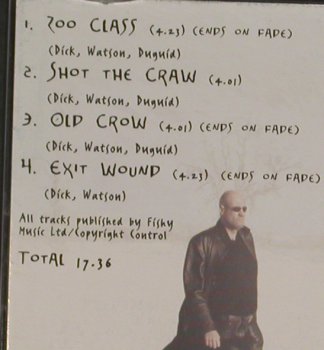 1. ZOO CLASS (4.23) (ENDS ON FADE)
(Dick, Watson, Duguid)
2. SHOT THE CRAW (4.01)
(Dick, Watson, Duguid)
3. OLD CROW (4.01) (ENDS ON FADE)
(Dick, Watson, Duguid)
4. EXIT WOUND (4.23) (ENDS ON FADE)
(Dick, Watson)
All tracks published by Fishy
Music Ltd/Copyright Control
TOTAL 17.36